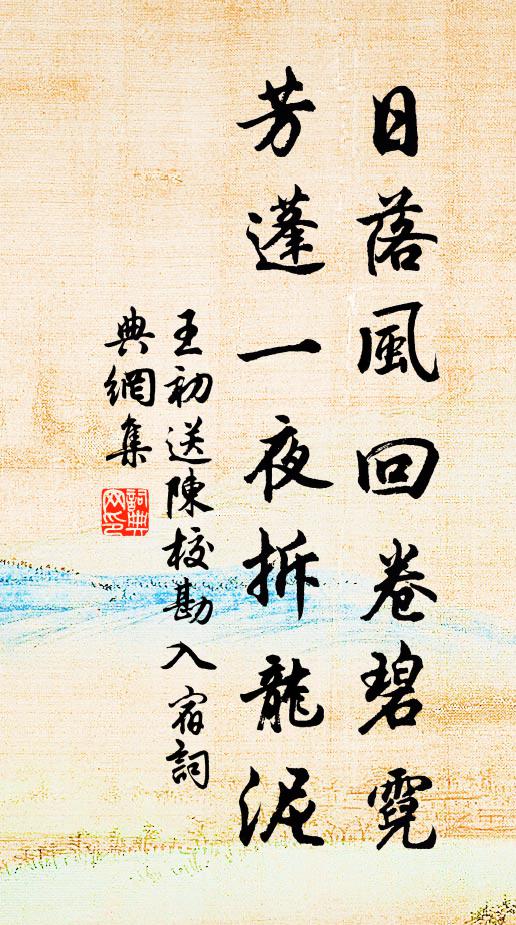 日落風回卷碧霓
芳蓬一夜拆龍泥
王初送陳校勘入宿詞
典網集
詞典
网印